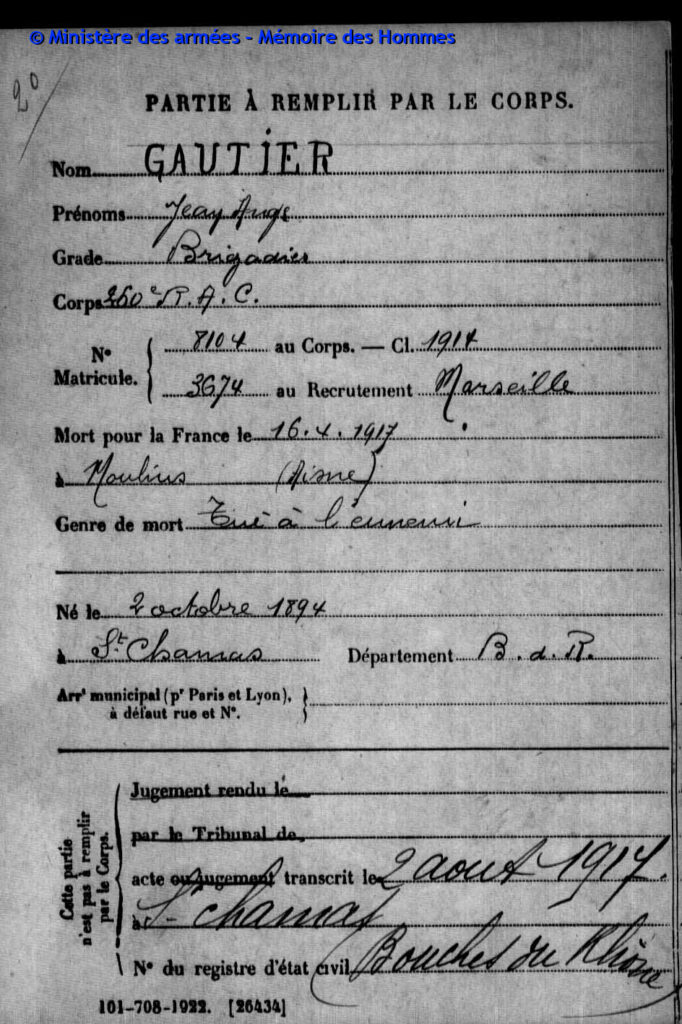 © Ministère des armées - Mémoire des Hommes
20
PARTIE À REMPLIR PAR LE CORPS.
Nom GAUTIER
Prénoms Jean Ange
Grade Brigadier
Corps 260e R.A.C.
N° Matricule. { 8104 au Corps. — Cl. 1914
3674 au Recrutement Marseille
Mort pour la France le 16.4.1917
à Moulins (Aisne)
Genre de mort Tué à l'ennemi
Né le 2 octobre 1894
à St Chamas Département B.d.R.
Arrt municipal (pr Paris et Lyon), }
à défaut rue et N°.
Cette partie n'est pas à remplir par le Corps.
Jugement rendu le
par le Tribunal de
acte ou jugement transcrit le 2 aout 1917.
à St chamas
N° du registre d'état civil (Bouches du Rhône)
101-708-1922. [26434]